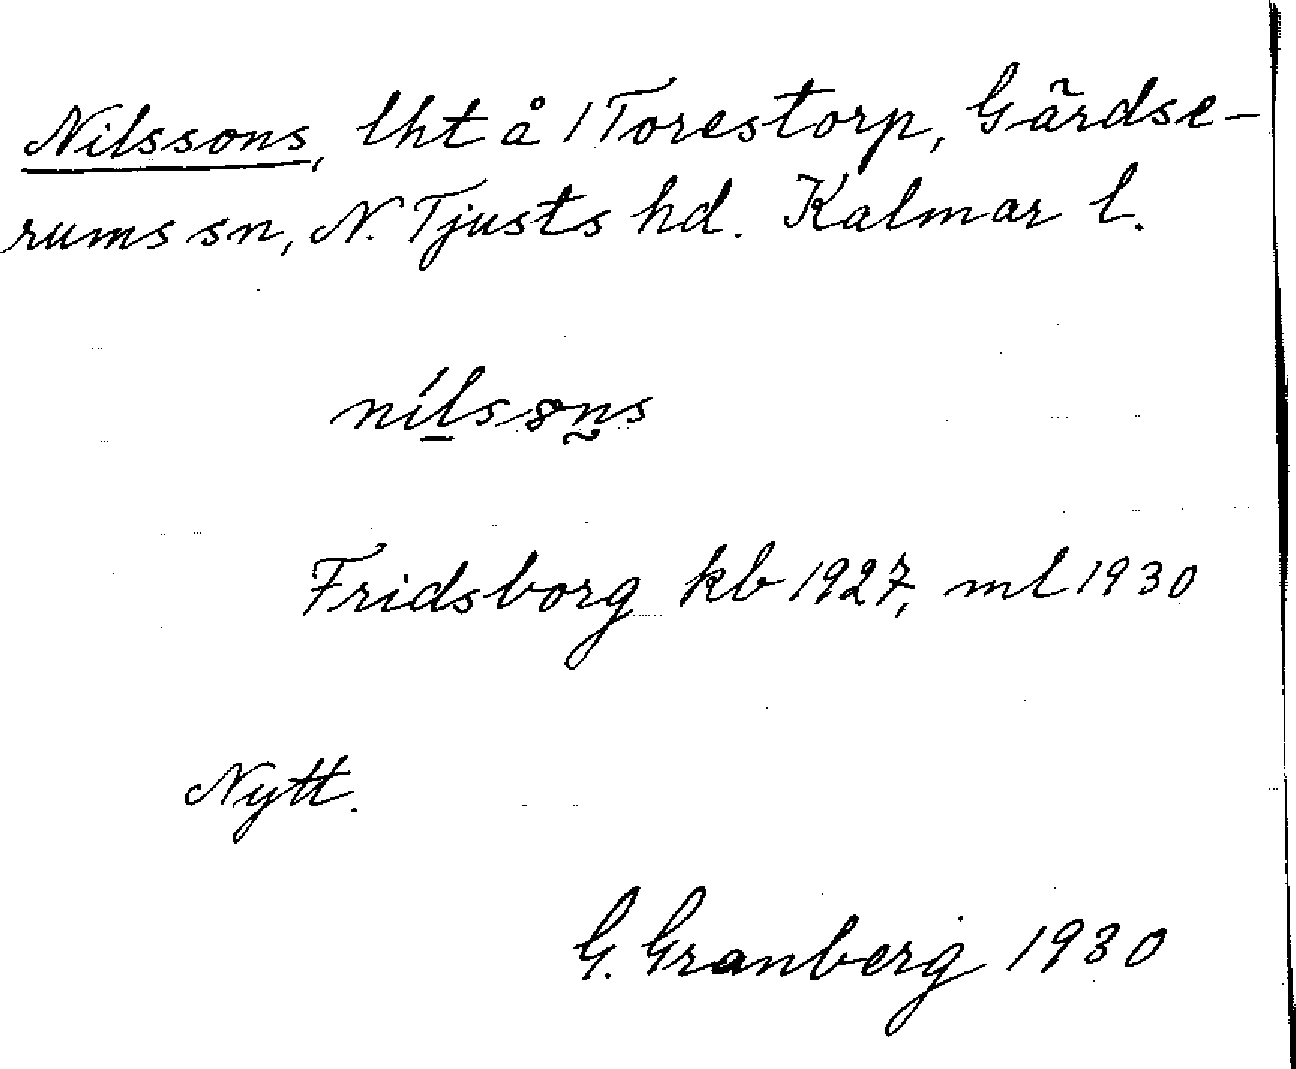 Nilssons, lht å 1 Torestorp, Gärdse-
rums sn, N. Tjusts hd. Kalmar l.
nílssons
Fridsborg kb 1927, ml 1930
Nytt.
G. Granberg 1930